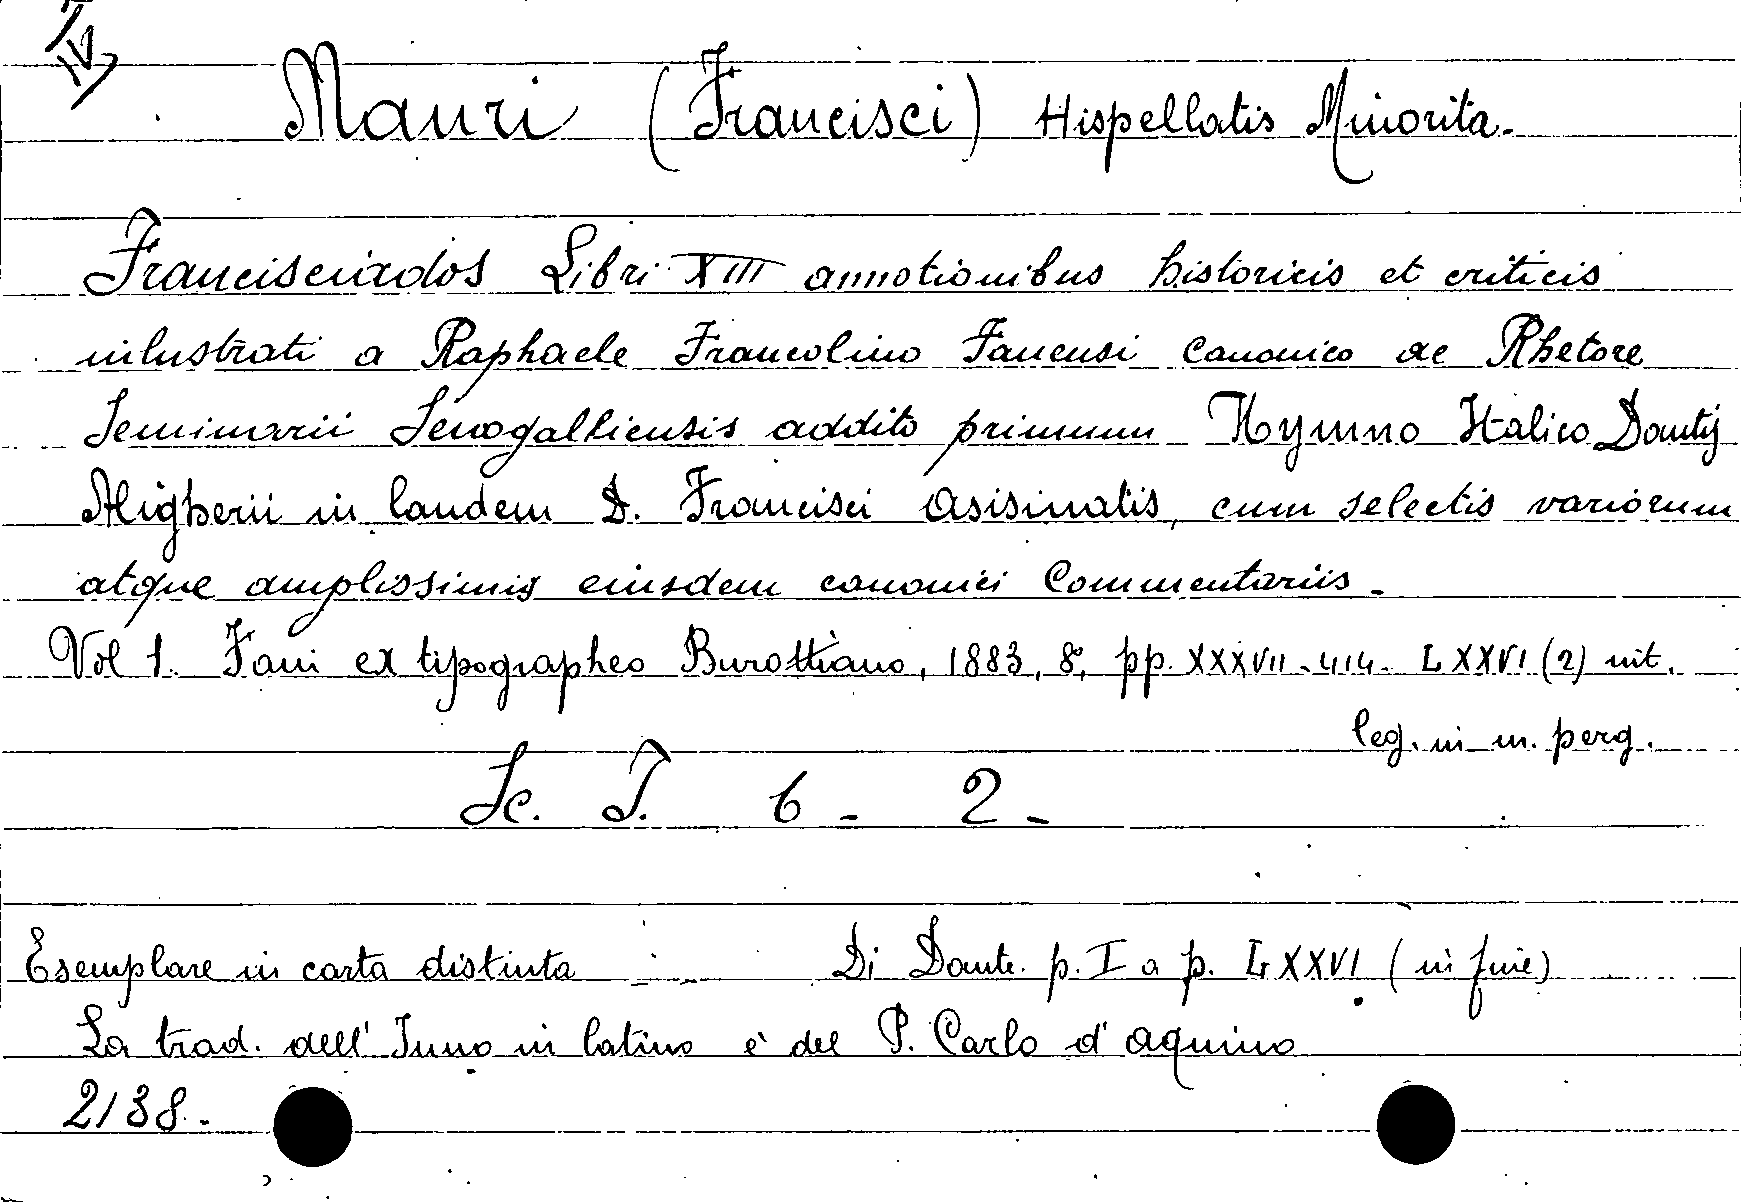 IV
Mauri (Francisci) Hispellatis Minorita.
Francisciados Libri XIII annotionibus historicis et criticis
inlustrati a Raphaele Francolino Fanensi canonico ac Rhetore
Seminarii Senogalliensis addito primum Hymno Italico Dantis
Aligherii in laudem D. Francisci Asisinatis, cum selectis variorum
atque amplissimis eiusdem canonici Commentariis.
Vol 1. Fani ex tipographeo Burottiano, 1883, 8°, pp. XXXVII-414- LXXVI (2) nit.
leg. in m. perg.
Sc. I. 6 - 2 -
Esemplare in carta distinta
Di Dante. p. I a p. LXXVI (in fine)
La trad. dell' Inno in latino è del P. Carlo d'Aquino
2138.